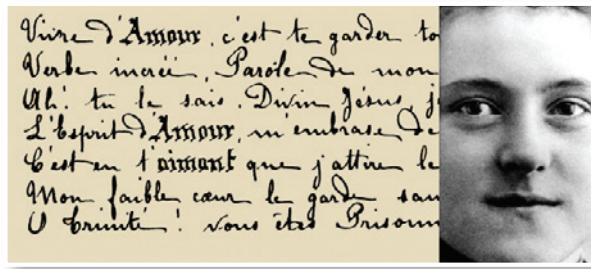 Vivre d'Amour, c'est te garder to
Verbe increé, Parole de mon
Ah! tu le sais, Divin Jésus, j
L'Esprit d'Amour m'embrase de
C'est en t'aimant que j'attire le
Mon faible cœur le garde san
O Trinité! vous êtes Prisonn